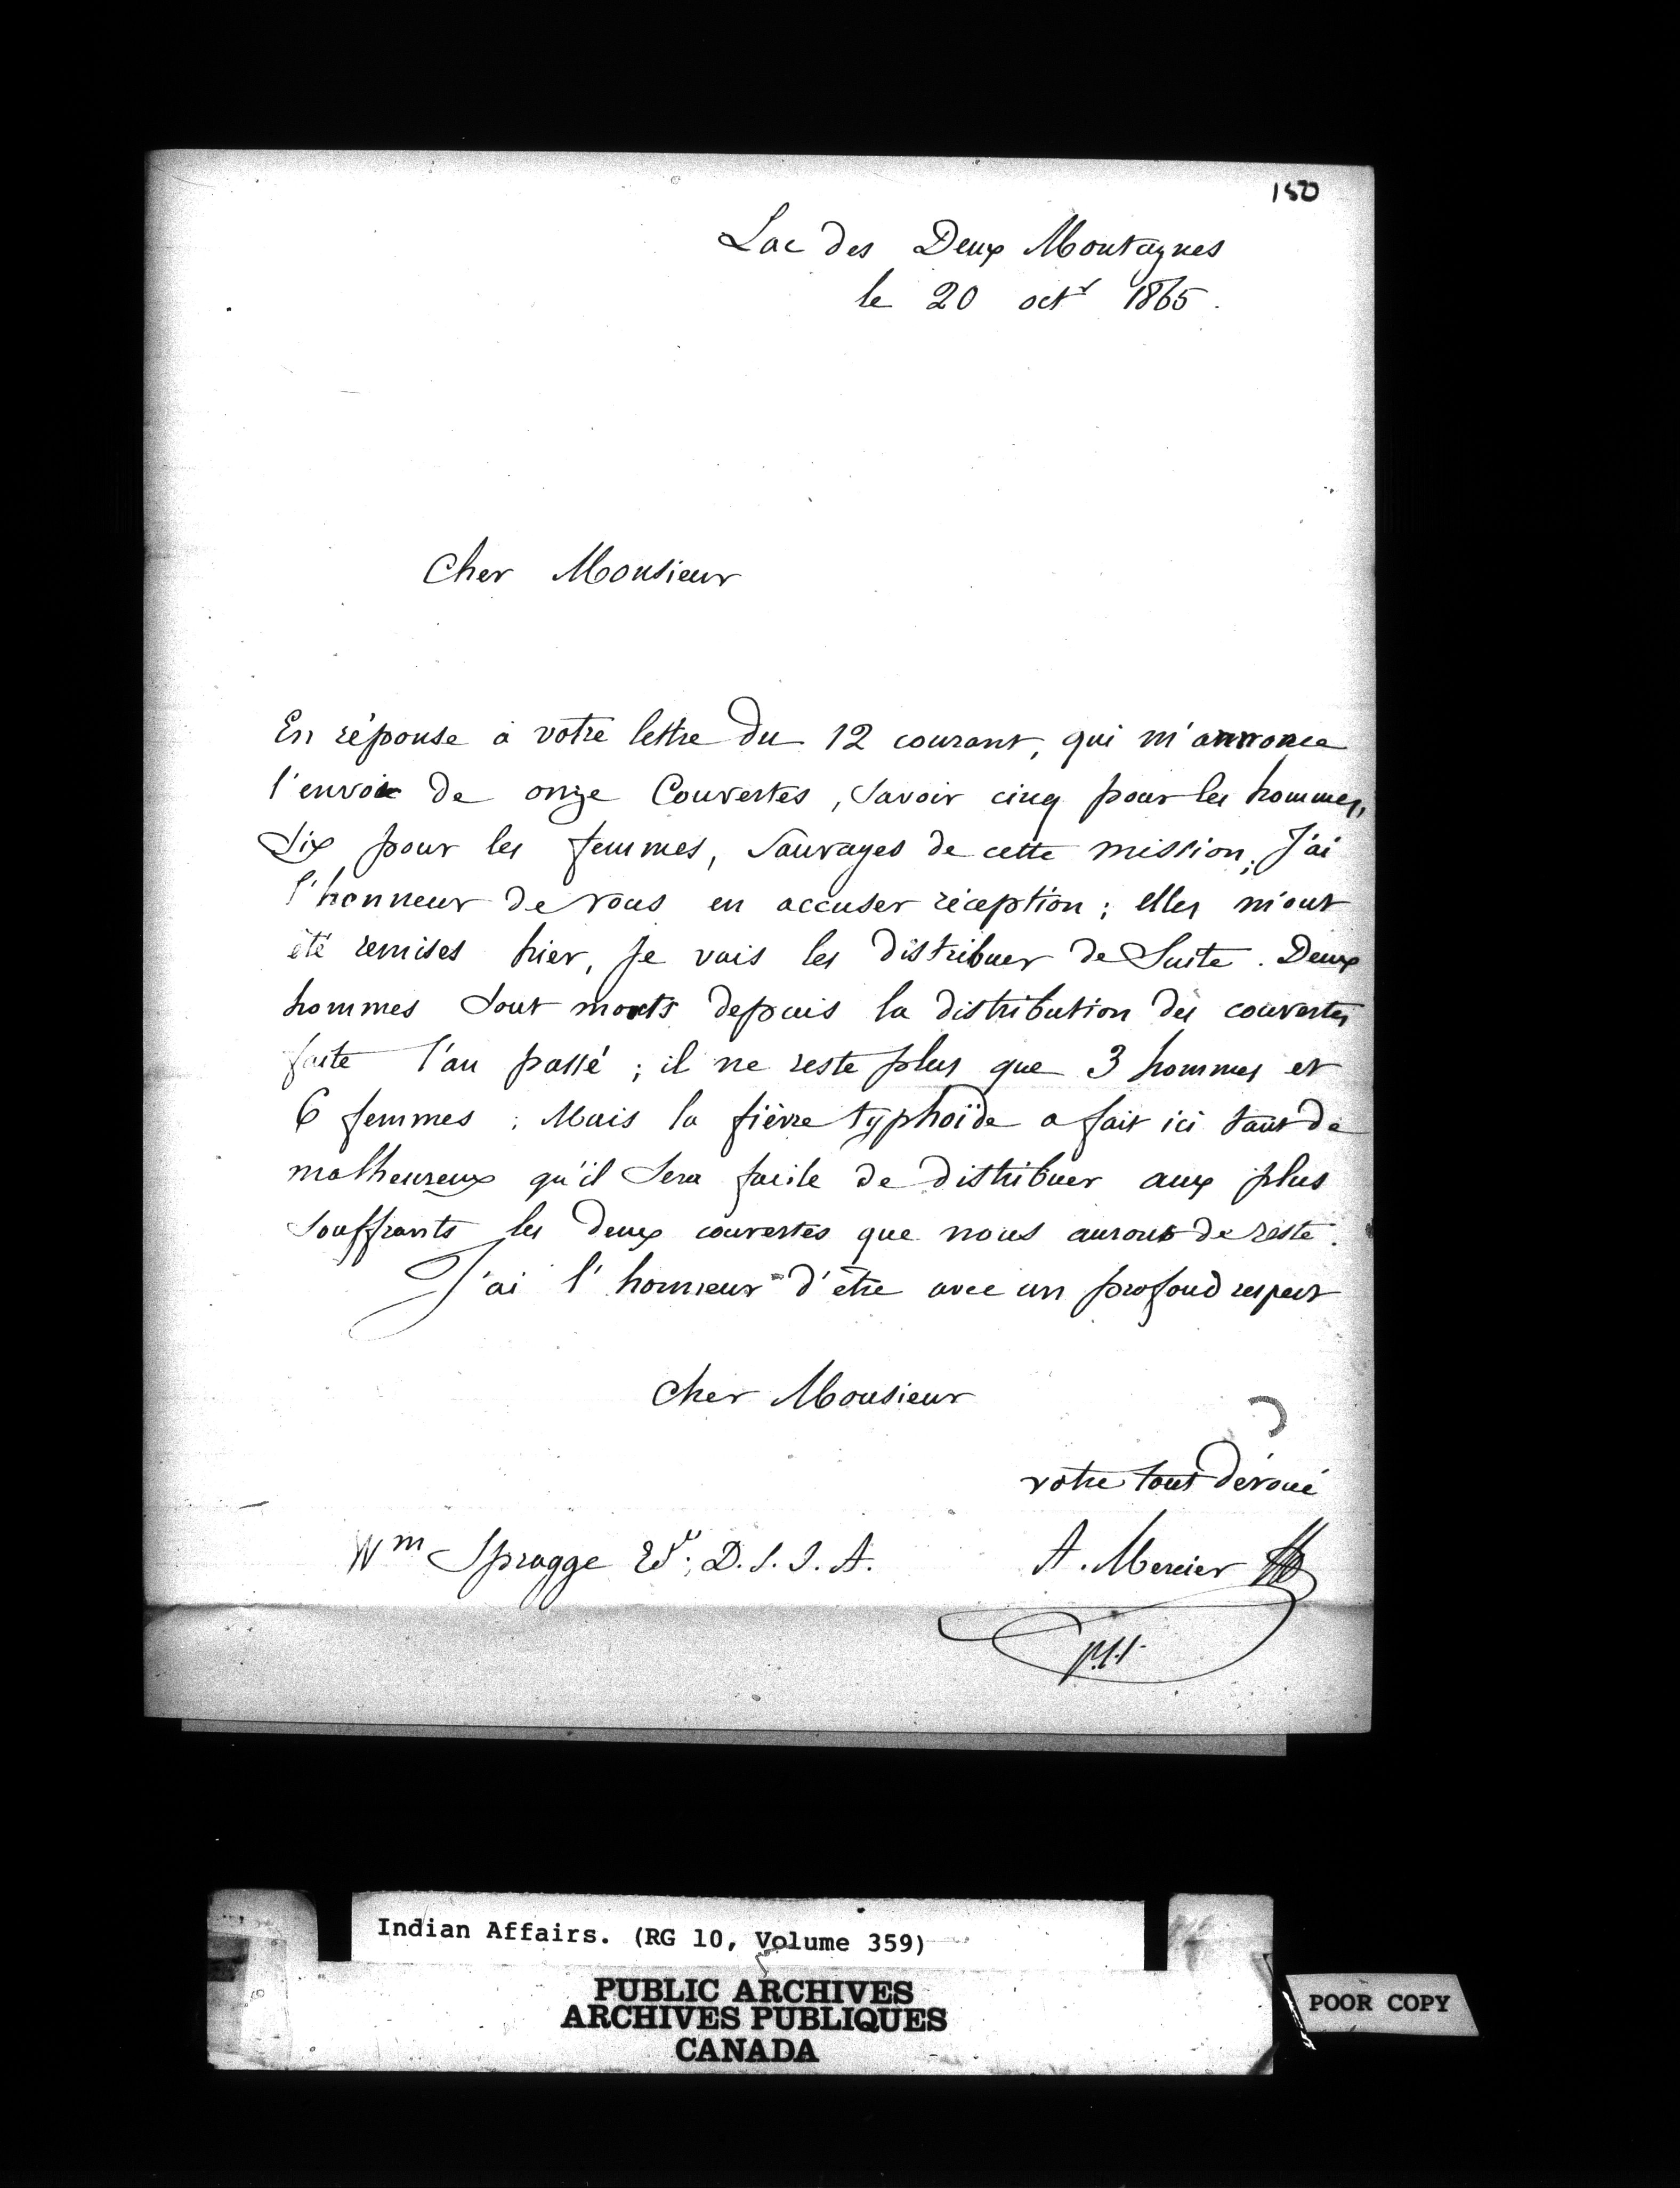 150
Lac des Deux Montagnes
le 20 octr 1865.
Cher Monsieur
En réponse à votre lettre du 12 courant, qui m'annonce
l'envoi de onze Couvertes, savoir cinq pour les hommes,
six pour les femmes, sauvages de cette mission; J'ai
l'honneur de vous en accuser réception; elles m'ont
été remises hier, je vais les distribuer de suite. Deux
hommes sont morts depuis la distribution des couvertes
faite l'an passé; il ne reste plus que 3 hommes et
6 femmes; Mais la fièvre typhoïde a fait ici tant de
malheureux qu'il sera facile de distribuer aux plus
souffrants les deux couvertes que nous aurons de reste.
J'ai l'honneur d'être avec un profond respect
Cher Monsieur
votre tout dévoué
Wm Spragge Er; D.S.I.A.
A. Mercier
Indian Affairs. (RG 10, Volume 359)
PUBLIC ARCHIVES
ARCHIVES PUBLIQUES
CANADA
POOR COPY